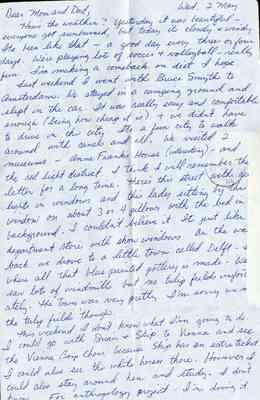 Wed. 2 May
Dear Mom and Dad,
How's the weather? Yesterday it was beautiful -
everyone got sunburned, but today its cloudy & windy.
Its been like that - a good day every three or four
days. We're playing lots of soccer & volleyball - really
fun. I'm making a comeback on diet I hope
Last weekend I went with Bruce Smythe to
Amsterdam. We stayed in a camping ground and
slept in the car. It was really easy and comfortable
enough (being how cheap it is) & we didn't have
to drive in the city. Its a fun city to walk
around with canals and all. We visited 2
museums - Anne Franks House (interesting) - and
the red light district. I think I will remember the
latter for a long time. Here's this street with
lights in windows and this lady sitting by this
window on about 3 or 4 pillows with the bed in
background. I couldn't believe it. It just like
department store with show windows. On the way
back we drove to a little town called Delft -
where all that blue painted pottery is made. We
saw lots of windmills but no tulip fields unfort-
ately. The town was very pretty. I'm sorry we missed
the tulip fields though.
This weekend I don't know what I'm going to do.
I could go with Brian & Skip to Vienna and see
the Vienna Boys Choir because Skip has an extra ticket.
I could also see the white horses there. However I
could also stay around here and study. I don't
know. For anthropology project - I'm doing it